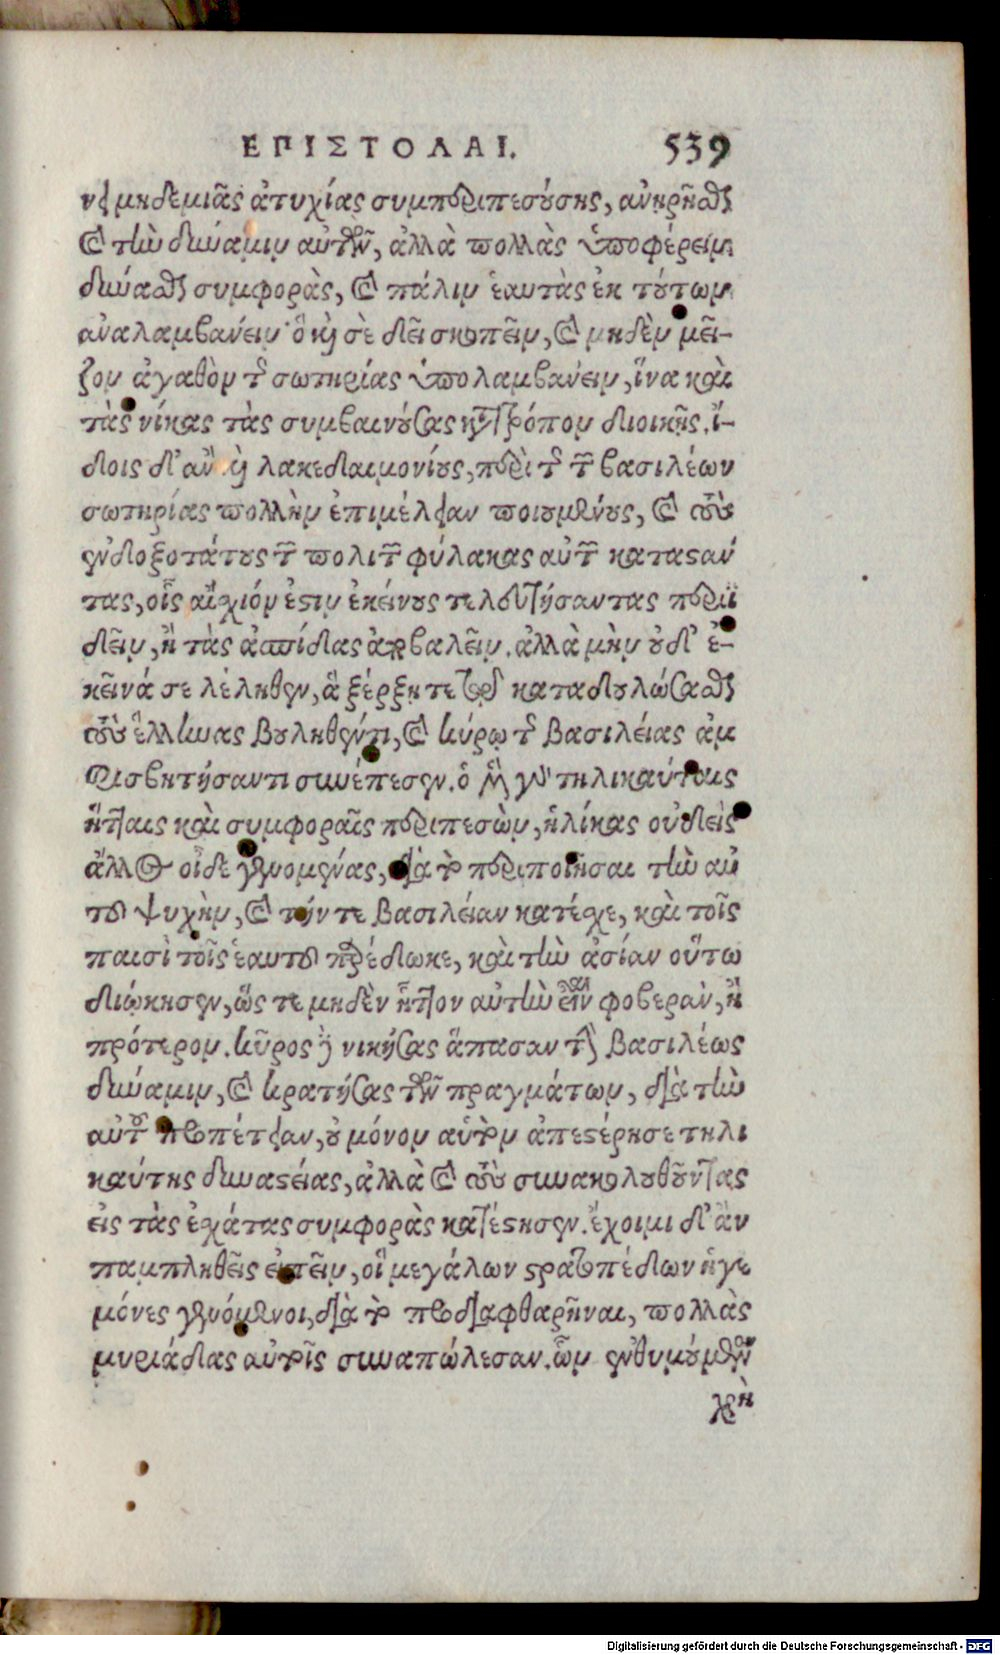 ΕΠΙΣΤΟΛΑΙ. 539
νὶ μηδεμιᾶς ἀτυχίας συμπεριπεσούσης, ἀνῃρῆσθαι
καὶ τὴν δύναμιν αὐτῶν, ἀλλὰ πολλὰς ὑποφέρειν
δύνασθαι συμφορὰς, καὶ πάλιν ἑαυτὰς ἐκ τούτων
ἀναλαμβάνειν· ὃ καὶ σὲ δεῖ σκοπεῖν, καὶ μηδὲν μεῖ-
ζον ἀγαθὸν τῆς σωτηρίας ὑπολαμβάνειν, ἵνα καὶ
τὰς νίκας τὰς συμβαινούσας κατὰ τρόπον διοικῇς. ἴ-
δοις δ' ἂν καὶ λακεδαιμονίους, περὶ τῆς τῶν βασιλέων
σωτηρίας πολλὴν ἐπιμέλειαν ποιουμένους, καὶ τοὺς
ἐνδοξοτάτους τῶν πολιτῶν φύλακας αὐτῶν καταστάν
τας, οἷς αἴσχιόν ἐστιν ἐκείνους τελευτήσαντας περιι
δεῖν, ἢ τὰς ἀσπίδας ἀποβαλεῖν. ἀλλὰ μὴν οὐδ' ἐ-
κεῖνά σε λέληθεν, ἃ ξέρξῃ τε τῷ καταδουλώσασθαι
τοὺς ἕλληνας βουληθέντι, καὶ κύρῳ τῆς βασιλείας ἀμ
φισβητήσαντι συνέπεσεν. ὁ μὲν γὰρ τηλικαύταις
ἥτταις καὶ συμφοραῖς περιπεσὼν, ἡλίκας οὐδεὶς
ἄλλος οἶδε γενομένας, διὰ τὸ περιποιῆσαι τὴν αὑ
τοῦ ψυχὴν, καὶ τήν τε βασιλείαν κατέσχε, καὶ τοῖς
παισὶ τοῖς ἑαυτοῦ παρέδωκε, καὶ τὴν ἀσίαν οὕτω
διῴκησεν, ὥς τε μηδὲν ἧττον αὐτὴν εἶναι φοβερὰν, ἢ
πρότερον. κῦρος δὲ νικήσας ἅπασαν τὴν βασιλέως
δύναμιν, καὶ κρατήσας τῶν πραγμάτων, διὰ τὴν
αὑτοῦ προπέτειαν, οὐ μόνον αὑτὸν ἀπεστέρησε τηλι
καύτης δυναστείας, ἀλλὰ καὶ τοὺς συνακολουθοῦντας
εἰς τὰς ἐσχάτας συμφορὰς κατέστησεν. ἔχοιμι δ' ἂν
παμπληθεῖς εἰπεῖν, οἳ μεγάλων στρατοπέδων ἡγε
μόνες γενόμενοι, διὰ τὸ προδιαφθαρῆναι, πολλὰς
μυριάδας αὑτοῖς συναπώλεσαν. ὧν ἐνθυμούμενον
χρὴ
Digitalisierung gefördert durch die Deutsche Forschungsgemeinschaft - DFG